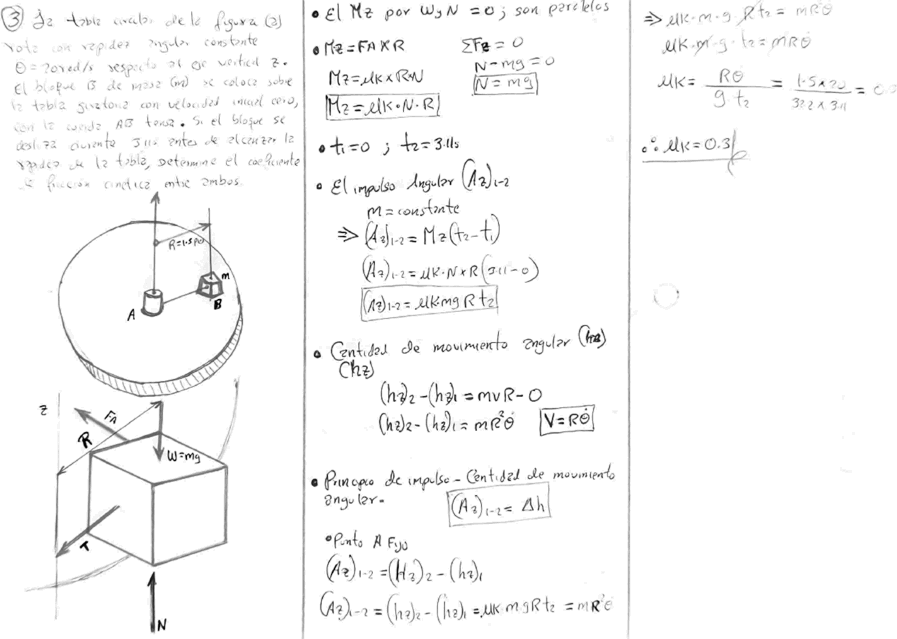 ③ La tabla circular de la figura (a)
rota con rapidez angular constante
θ̇=20rad/s respecto al eje vertical z.
El bloque B de masa (m) se coloca sobre
la tabla giratoria con velocidad inicial cero,
con la cuerda AB tensa. Si el bloque se
desliza durante 3.11s antes de alcanzar la
rapidez de la tabla, determine el coeficiente
de fricción cinética entre ambos.
R=1.5
A
m
B
z
FA
R
W=mg
T
N
• El Mz por W y N = 0; son paralelos
• Mz = FA x R
ΣFz = 0
Mz = μk x R·N
N - mg = 0
Mz = μk·N·R
N = mg
• t1=0 ; t2=3.11s
• El impulso Angular (Az)1-2
m = constante
⇒ (Az)1-2 = Mz(t2-t1)
(Az)1-2 = μk·N x R(3.11-0)
(Az)1-2 = μk mg R t2
• Cantidad de movimiento angular
(hz)
(hz)2-(hz)1 = mvR - 0
(hz)2-(hz)1 = mR²θ̇
V = Rθ̇
• Principio de impulso - Cantidad de movimiento
angular.
(Az)1-2 = Δh
• Punto A Fijo
(Az)1-2 = (Hz)2 - (hz)1
(Az)1-2 = (hz)2 - (hz)1 = μk·mgRt2 = mR²θ̇
⇒ μk·m·g R t2 = mR²θ̇
μk·m·g·t2 = mRθ̇
μk = Rθ̇ / g·t2 = 1.5x20 / 32.2 x 3.11
∴ μk = 0.3